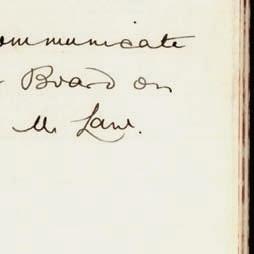 ommunicate
Board on
Mr Law.